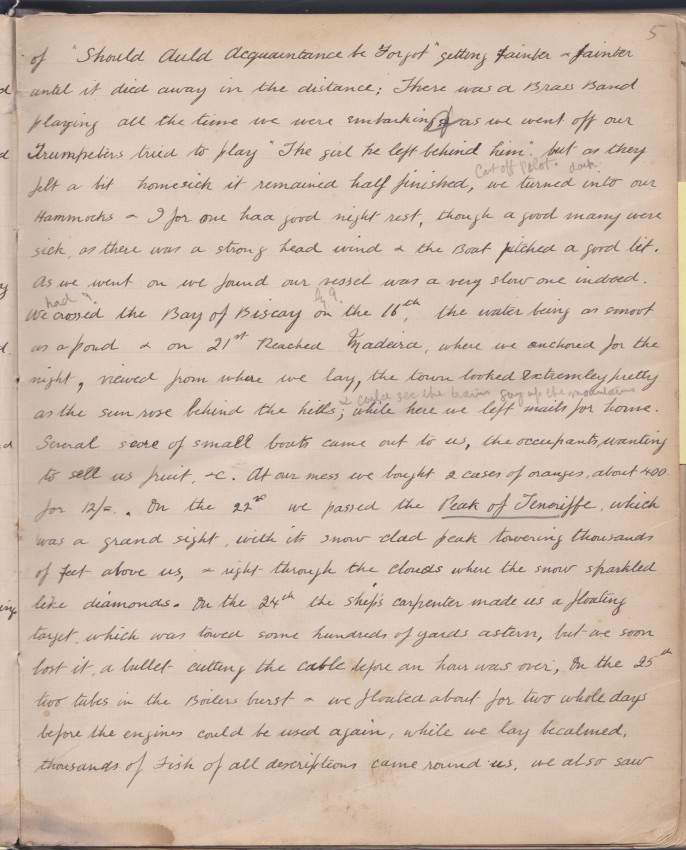 5
of "Should Auld Acquaintance be Forgot" getting fainter & fainter
until it died away in the distance; There was a Brass Band
playing all the time we were embarking & as we went off our
Trumpeters tried to play "The girl he left behind him". but as they
Cast off Pilot. dark.
felt a bit homesick it remained half finished, we turned into our
Hammocks & I for one had good night rest, though a good many were
sick, as there was a strong head wind & the Boat pitched a good bit.
As we went on we found our vessel was a very slow one indeed.
had a
We crossed the Bay of Biscay on the 16th, the water being as smoot
as a pond & on 21st Reached Madeira, where we anchored for the
night, viewed from where we lay, the town looked extremley pretty
& could see the train going up the mountains
as the sun rose behind the hills; while here we left mails for home.
Several score of small boats came out to us, the occupants, wanting
to sell us fruit, &c. At our mess we bought 2 cases of oranges, about 400
for 12/=. On the 22nd we passed the Peak of Teneriffe, which
was a grand sight, with its snow clad peak towering thousands
of feet above us, & right through the clouds where the snow sparkled
like diamonds. On the 24th the ship's carpenter made us a floating
target, which was towed some hundreds of yards astern, but we soon
lost it, a bullet cutting the cable before an hour was over, On the 25th
two tubes in the Boilers burst & we floated about for two whole days
before the engines could be used again, while we lay becalmed,
thousands of Fish of all descriptions came round us, we also saw